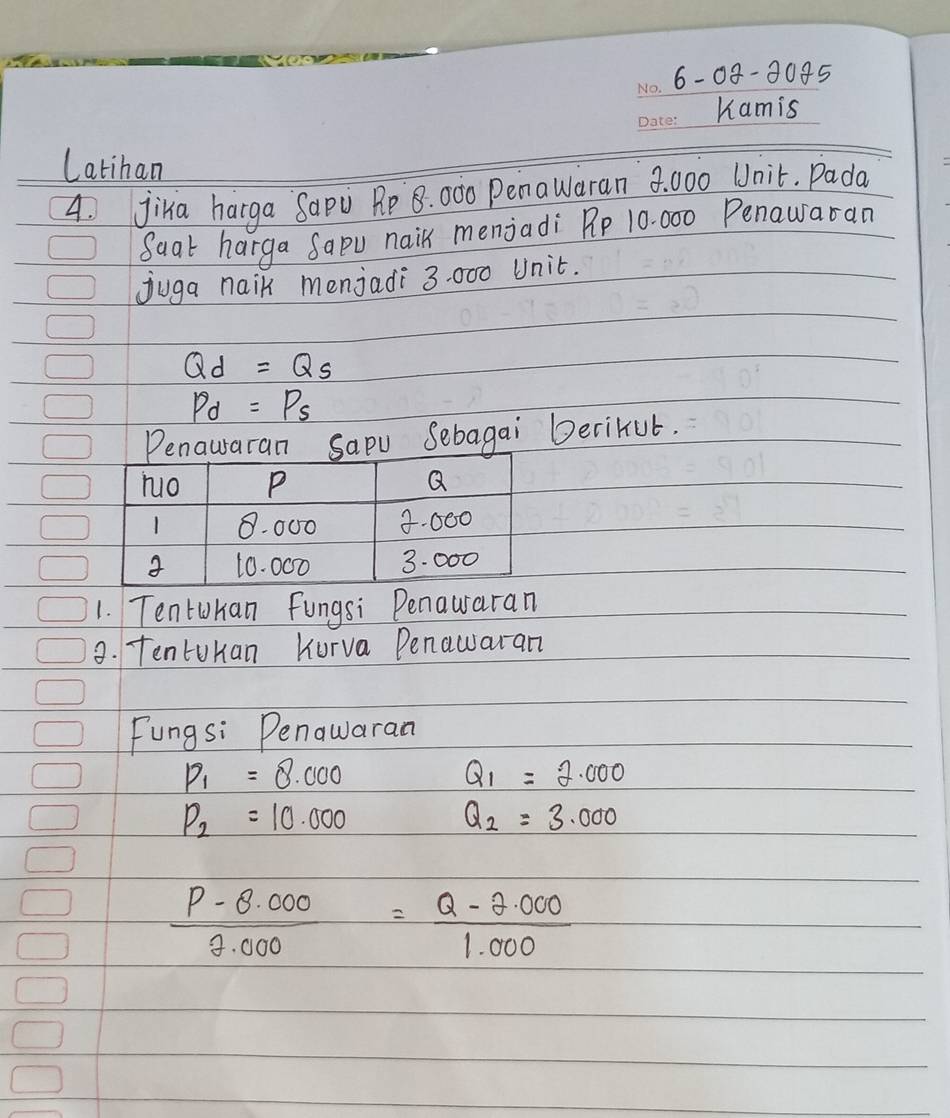 No. 6-02-2025
Date: Kamis
Latihan
4. Jika harga Sapu Rp 8.000 penawaran 2.000 Unit. Pada
Saat harga Sapu naik menjadi Rp 10.000 Penawaran
juga naik menjadi 3.000 Unit.
Qd = Qs
Pd = Ps
Penawaran Sapu Sebagai berikut. =
No P Q
1 8.000 2.000
2 10.000 3.000
1. Tentukan Fungsi Penawaran
2. Tentukan Kurva Penawaran
Fungsi Penawaran
P₁ = 8.000 Q₁ = 2.000
P₂ = 10.000 Q₂ = 3.000
P - 8.000 = Q - 2.000
2.000 1.000